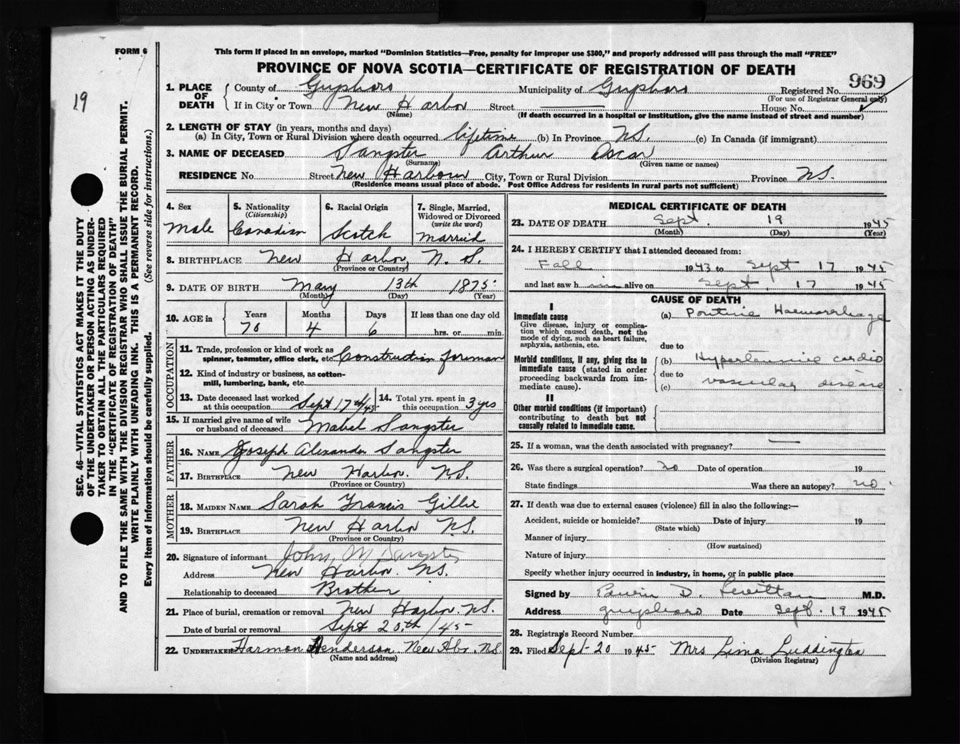 FORM 6
This form if placed in an envelope, marked "Dominion Statistics—Free, penalty for improper use $300," and properly addressed will pass through the mail "FREE"
PROVINCE OF NOVA SCOTIA—CERTIFICATE OF REGISTRATION OF DEATH
19
SEC. 46—VITAL STATISTICS ACT MAKES IT THE DUTY
OF THE UNDERTAKER OR PERSON ACTING AS UNDER-
TAKER TO OBTAIN ALL THE PARTICULARS REQUIRED
IN THE "CERTIFICATE OF REGISTRATION OF DEATH"
AND TO FILE THE SAME WITH THE DIVISION REGISTRAR WHO SHALL ISSUE THE BURIAL PERMIT.
WRITE PLAINLY WITH UNFADING INK. THIS IS A PERMANENT RECORD.
Every item of information should be carefully supplied. (See reverse side for instructions.)
1. PLACE OF DEATH County of Guysboro Municipality of Guysboro Registered No. 969
(For use of Registrar General only)
If in City or Town New Harbor Street House No.
(Name) (If death occurred in a hospital or institution, give the name instead of street and number)
2. LENGTH OF STAY (in years, months and days)
(a) In City, Town or Rural Division where death occurred lifetime (b) In Province N.S. (c) In Canada (if immigrant)
3. NAME OF DECEASED Sangster Arthur Oscar
(Surname) (Given name or names)
RESIDENCE No. Street New Harbour City, Town or Rural Division Province N.S.
(Residence means usual place of abode. Post Office Address for residents in rural parts not sufficient)
4. Sex
Male
5. Nationality
(Citizenship)
Canadian
6. Racial Origin
Scotch
7. Single, Married,
Widowed or Divorced
(write the word)
Married
8. BIRTHPLACE New Harbor, N.S.
(Province or Country)
9. DATE OF BIRTH May 13th 1875
(Month) (Day) (Year)
10. AGE in Years Months Days If less than one day old
70 4 6 hrs. or min.
OCCUPATION
11. Trade, profession or kind of work as
spinner, teamster, office clerk, etc. Construction forman
12. Kind of industry or business, as cotton-
mill, lumbering, bank, etc.
13. Date deceased last worked
at this occupation Sept 17th/45
14. Total yrs. spent in
this occupation 3 yrs
15. If married give name of wife
or husband of deceased Mabel Sangster
FATHER
16. NAME Joseph Alexander Sangster
17. BIRTHPLACE New Harbor. N.S.
(Province or Country)
MOTHER
18. MAIDEN NAME Sarah Francis Gillie
19. BIRTHPLACE New Harbor N.S.
(Province or Country)
20. Signature of informant John M Sangster
Address New Harbor. N.S.
Relationship to deceased Brother
21. Place of burial, cremation or removal New Harbor. N.S.
Date of burial or removal Sept 20th/45
22. UNDERTAKER Harmon Henderson. New Hbr. N.S.
(Name and address)
MEDICAL CERTIFICATE OF DEATH
23. DATE OF DEATH Sept. 19 1945
(Month) (Day) (Year)
24. I HEREBY CERTIFY that I attended deceased from:
Fall 1943 to Sept 17 1945
and last saw him alive on Sept 17 1945
CAUSE OF DEATH
I
Immediate cause
Give disease, injury or complica-
tion which caused death, not the
mode of dying, such as heart failure,
asphyxia, asthenia, etc.
(a) Pontine Haemorrhage
due to
Morbid conditions, if any, giving rise to
immediate cause (stated in order
proceeding backwards from im-
mediate cause).
(b) Hypertensive cardio
due to
(c) vascular disease
II
Other morbid conditions (if important)
contributing to death but not
causally related to immediate cause.
25. If a woman, was the death associated with pregnancy? —
26. Was there a surgical operation? no Date of operation 19
State findings Was there an autopsy? no
27. If death was due to external causes (violence) fill in also the following:—
Accident, suicide or homicide? Date of injury 19
(State which)
Manner of injury
(How sustained)
Nature of injury
Specify whether injury occurred in industry, in home, or in public place
Signed by D. M.D.
Address Guysboro Date Sept. 19 1945
28. Registrar's Record Number
29. Filed Sept-20 1945 Mrs Luddington
(Division Registrar)